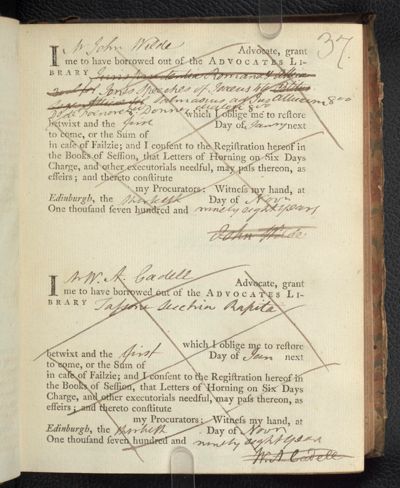 37
I, Mr John Wilde Advocate, grant
me to have borrowed out of the ADVOCATES LI-
BRARY
Jones Speeches of Isaeus 4to
Salmasius ad Jus Atticum 8vo
which I oblige me to restore
betwixt and the first Day of Janry next
to come, or the Sum of
in case of Failzie; and I consent to the Registration hereof in
the Books of Session, that Letters of Horning on Six Days
Charge, and other executorials needful, may pass thereon, as
effeirs; and thereto constitute
my Procurators: Witness my hand, at
Edinburgh, the thirtieth Day of Novr
One thousand seven hundred and ninety eight years
John Wilde
I, Mr W. A. Cadell Advocate, grant
me to have borrowed out of the ADVOCATES LI-
BRARY Tassoni Secchia Rapita
which I oblige me to restore
betwixt and the first Day of Jan next
to come, or the Sum of
in case of Failzie; and I consent to the Registration hereof in
the Books of Session, that Letters of Horning on Six Days
Charge, and other executorials needful, may pass thereon, as
effeirs; and thereto constitute
my Procurators: Witness my hand, at
Edinburgh, the thirtieth Day of Novr
One thousand seven hundred and ninety eight years
W. A. Cadell